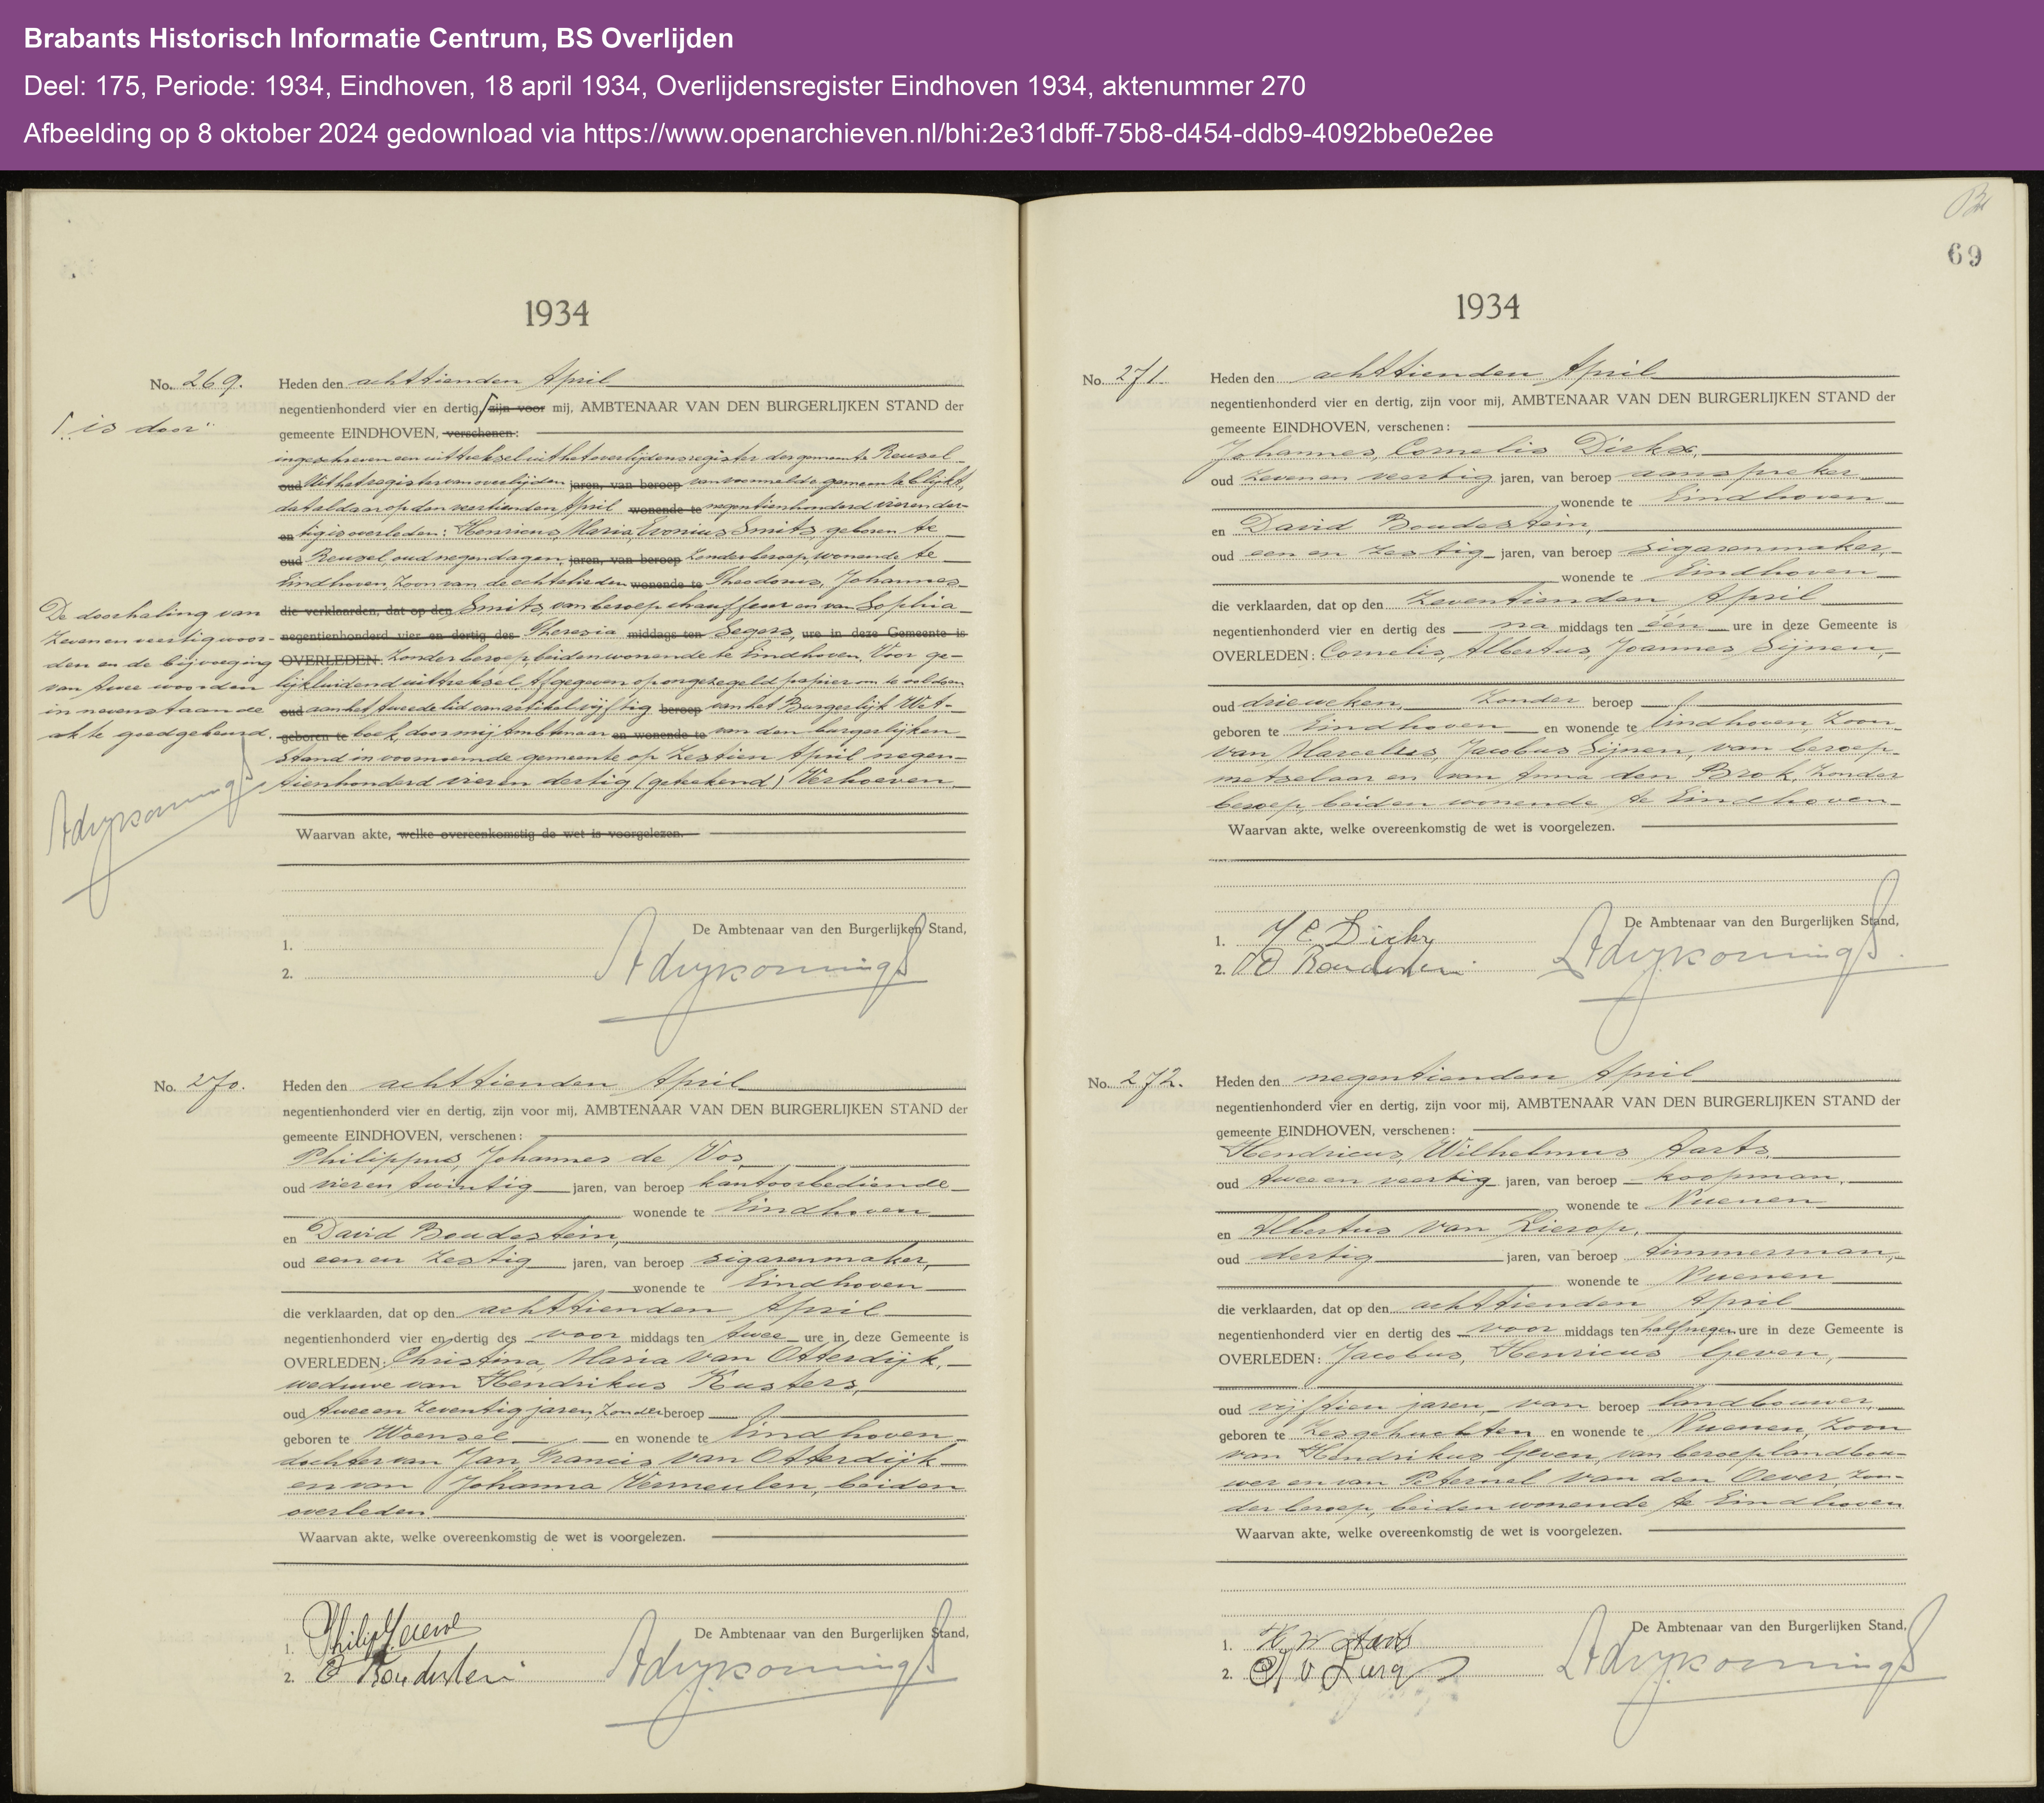 Brabants Historisch Informatie Centrum, BS Overlijden
Deel: 175, Periode: 1934, Eindhoven, 18 april 1934, Overlijdensregister Eindhoven 1934, aktenummer 270
Afbeelding op 8 oktober 2024 gedownload via https://www.openarchieven.nl/bhi:2e31dbff-75b8-d454-ddb9-4092bbe0e2ee
1934
No. 269.
Heden den achttienden April
negentienhonderd vier en dertig, zijn voor mij, AMBTENAAR VAN DEN BURGERLIJKEN STAND der
"is door"
gemeente EINDHOVEN, verschenen:
ingeschreven een uittreksel uit het overlijdensregister der gemeente Reusel
oud Uit het register van overlijden jaren, van beroep van voormelde gemeente blijkt,
dat aldaar op den veertienden April wonende te negentienhonderd vier en der-
en tig is overleden: Henricus Maria Evonius Smits, geboren te
oud Reusel, oud negen dagen, jaren, van beroep zonder beroep, wonende te
Eindhoven, zoon van de echtelieden wonende te Theodorus, Johannes
die verklaarden, dat op den Smits, van beroep chauffeur en van Sophia
negentienhonderd vier en dertig des Theresia middags ten Segers, ure in deze Gemeente is
OVERLEDEN: zonder beroep, beiden wonende te Eindhoven. Voor ge-
lijkluidend uittreksel. Afgegeven op ongezegeld papier om te voldoen
oud aan het tweede lid van artikel vijftig beroep van het Burgerlijk Wet-
geboren te boek, door mij Ambtenaar en wonende te van den burgerlijken
Stand in voornoemde gemeente op zestien April negen-
tienhonderd vier en dertig (getekend) Verhoeven
De doorhaling van
zeven en veertig woor-
den en de bijvoeging
van twee woorden
in nevenstaande
akte goedgekeurd.
Waarvan akte, welke overeenkomstig de wet is voorgelezen.
De Ambtenaar van den Burgerlijken Stand,
1.
2.
No. 270.
Heden den achttienden April
negentienhonderd vier en dertig, zijn voor mij, AMBTENAAR VAN DEN BURGERLIJKEN STAND der
gemeente EINDHOVEN, verschenen:
Philippus, Johannes de Vos
oud vier en twintig jaren, van beroep kantoorbediende
wonende te Eindhoven
en David Boudestein,
oud een en zestig jaren, van beroep sigarenmaker,
wonende te Eindhoven
die verklaarden, dat op den achttienden April
negentienhonderd vier en dertig des voor middags ten twee ure in deze Gemeente is
OVERLEDEN: Christina, Maria van Otterdijk,
weduwe van Hendrikus Kusters,
oud twee en zeventig jaren, zonder beroep
geboren te Woensel en wonende te Eindhoven
dochter van Jan Francis van Otterdijk
en van Johanna Vermeulen, beiden
overleden.
Waarvan akte, welke overeenkomstig de wet is voorgelezen.
De Ambtenaar van den Burgerlijken Stand,
1.
2. D Boudestein
69
1934
No. 271.
Heden den achttienden April
negentienhonderd vier en dertig, zijn voor mij, AMBTENAAR VAN DEN BURGERLIJKEN STAND der
gemeente EINDHOVEN, verschenen:
Johannes, Cornelis Dirkx,
oud zeven en veertig jaren, van beroep aanspreker
wonende te Eindhoven
en David Boudestein,
oud een en zestig jaren, van beroep sigarenmaker,
wonende te Eindhoven
die verklaarden, dat op den zeventienden April
negentienhonderd vier en dertig des na middags ten één ure in deze Gemeente is
OVERLEDEN: Cornelis, Albertus, Joannes Sijnen,
oud drie weken, zonder beroep
geboren te Eindhoven en wonende te Eindhoven, zoon
van Marcellus, Jacobus Sijnen, van beroep
metselaar en van Anna den Brok, zonder
beroep, beiden wonende te Eindhoven
Waarvan akte, welke overeenkomstig de wet is voorgelezen.
De Ambtenaar van den Burgerlijken Stand,
1. J C Dirkx
2. D Boudestein
No. 272.
Heden den negentienden April
negentienhonderd vier en dertig, zijn voor mij, AMBTENAAR VAN DEN BURGERLIJKEN STAND der
gemeente EINDHOVEN, verschenen:
Hendricus, Wilhelmus Aarts,
oud twee en veertig jaren, van beroep koopman,
wonende te Nuenen
en Albertus van Lierop,
oud dertig jaren, van beroep timmerman,
wonende te Nuenen
die verklaarden, dat op den achttienden April
negentienhonderd vier en dertig des voor middags ten half negen ure in deze Gemeente is
OVERLEDEN: Jacobus, Henricus Geven,
oud vijftien jaren, van beroep landbouwer,
geboren te Zesgehuchten en wonende te Nuenen, zoon
van Hendrikus Geven, van beroep landbou-
wer en van Peternel van den Oever, zon-
der beroep, beiden wonende te Eindhoven
Waarvan akte, welke overeenkomstig de wet is voorgelezen.
De Ambtenaar van den Burgerlijken Stand,
1. H W Aarts
2.